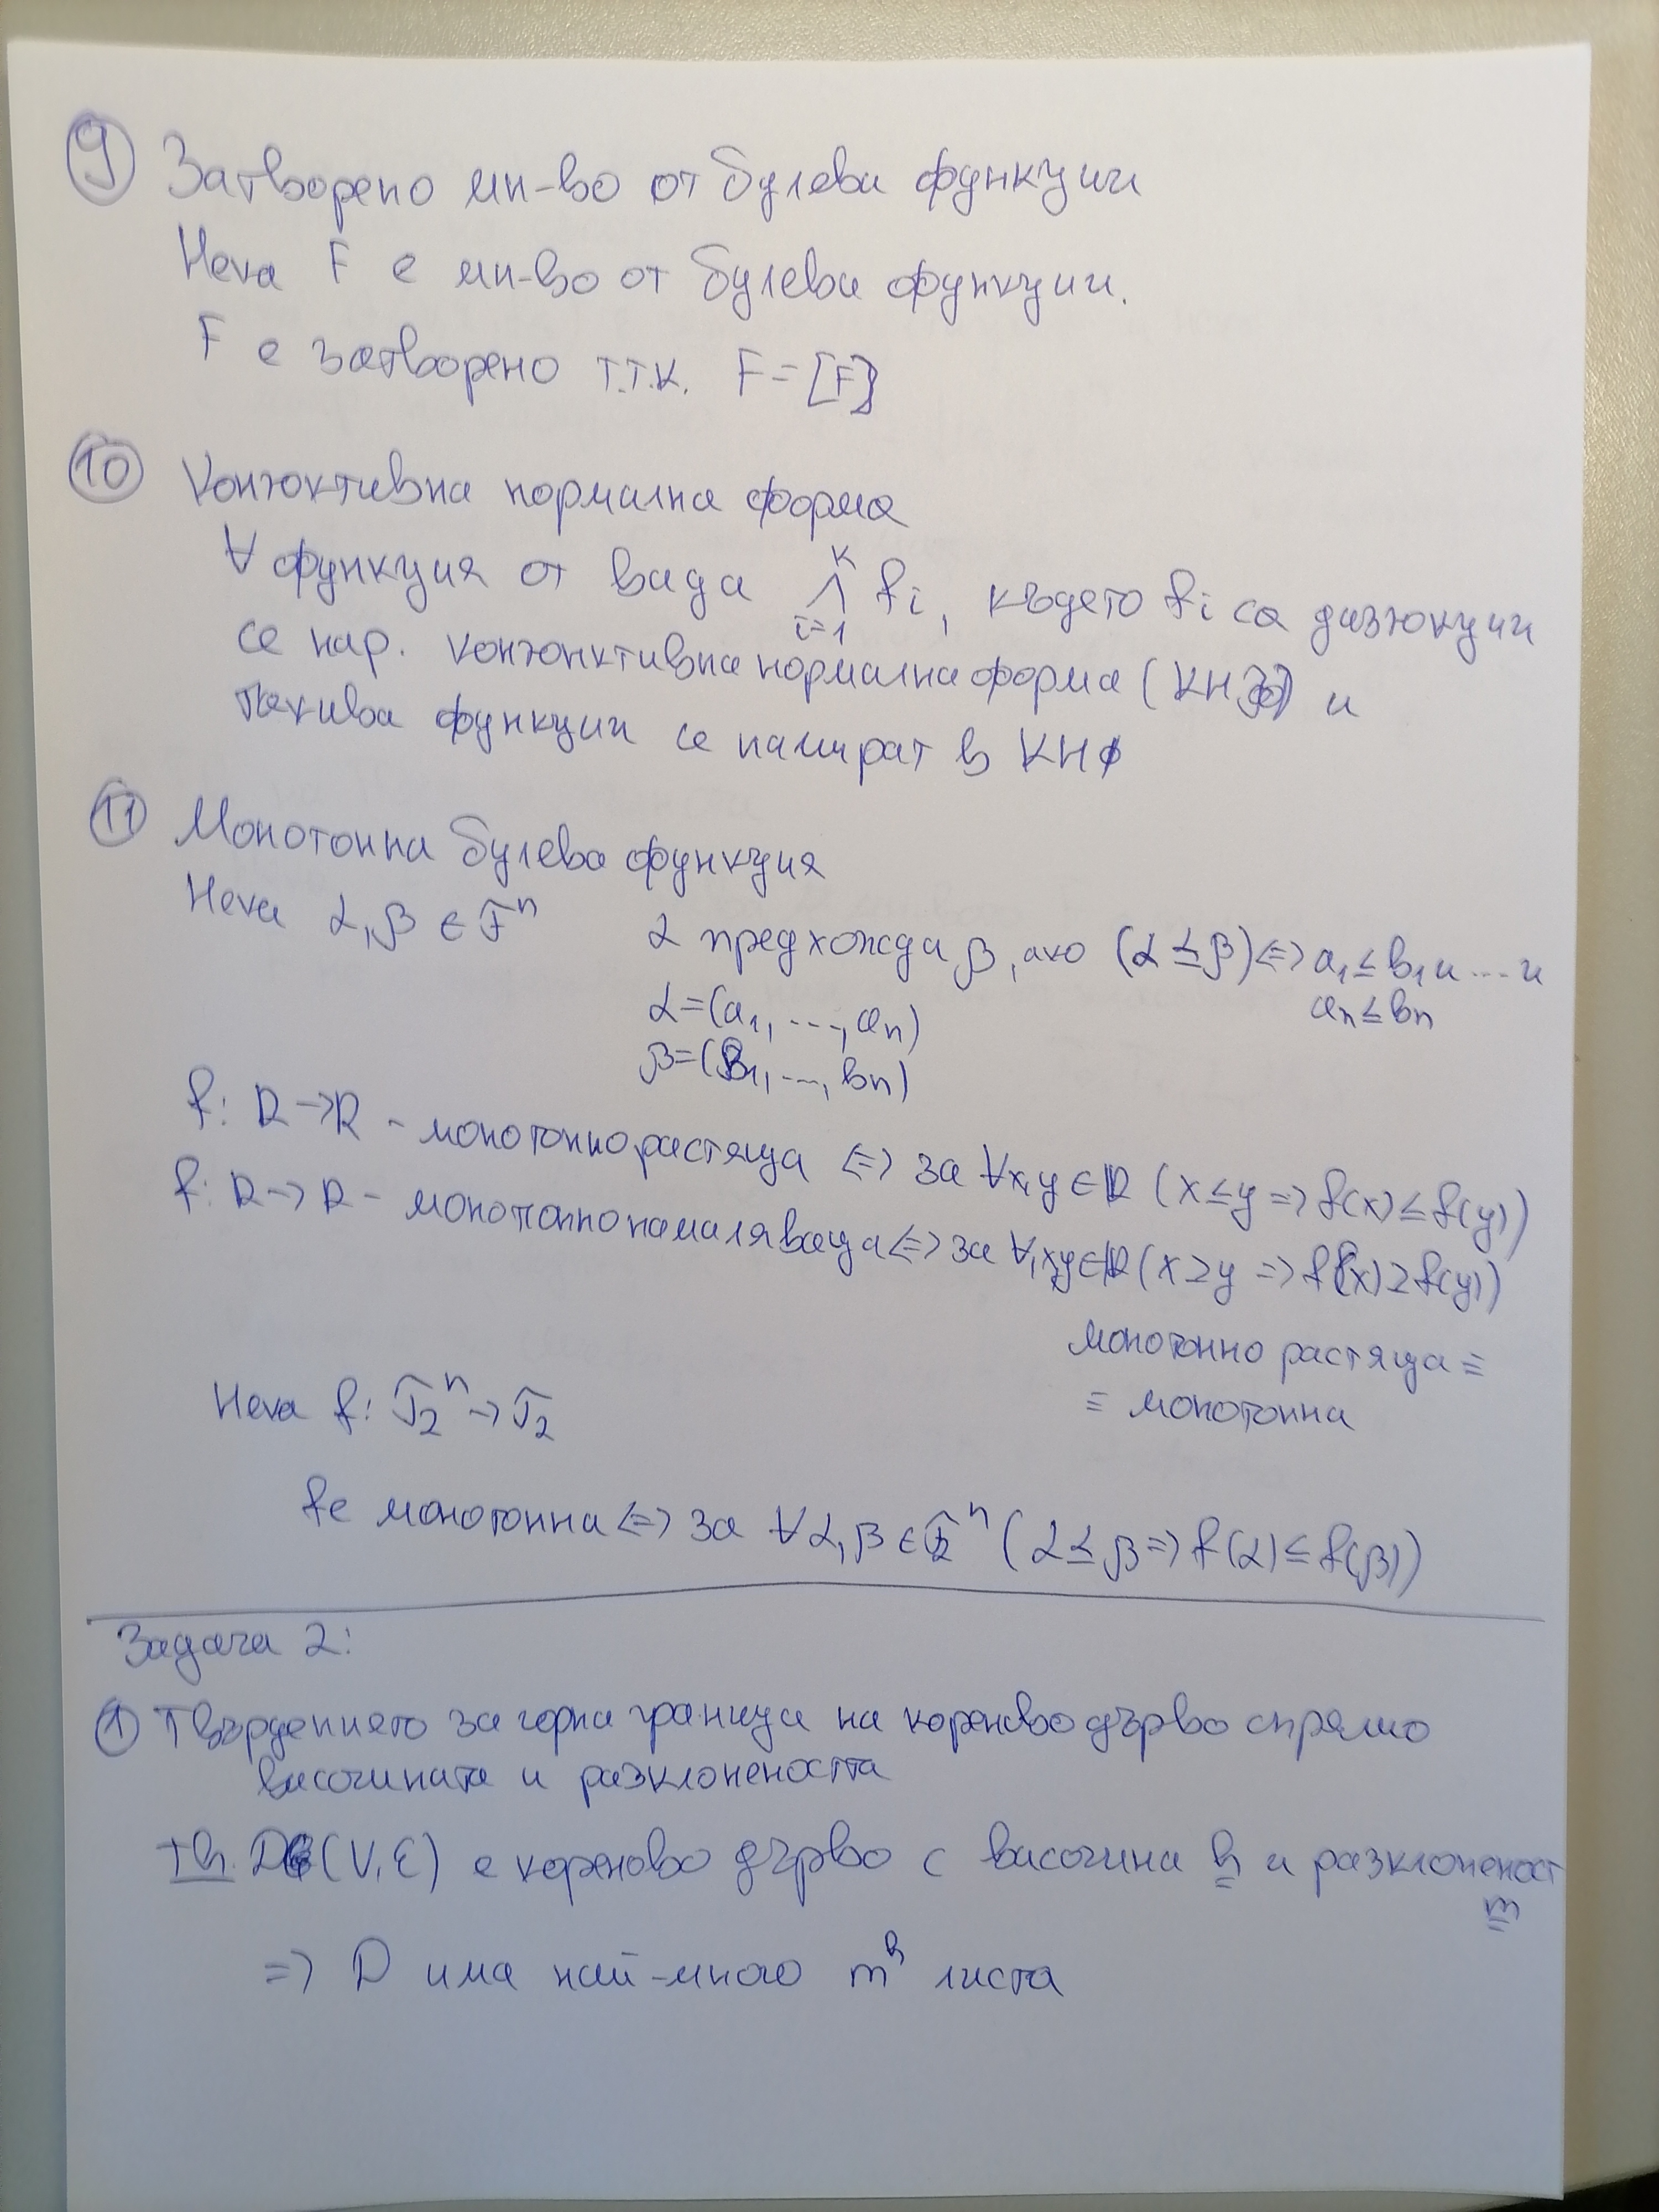 9 Затворено мн-во от булеви функции
Нека F е мн-во от булеви функции.
F е затворено т.т.к. F = [F]
10 Конюктивна нормална форма
∀ функция от вида ⋀ᵏᵢ₌₁ fi, където fi са дизюкции
се нар. конюнктивна нормална форма (КНФ) и
такива функции се намират в КНФ
11 Монотонна булева функция
Нека α, β ∈ Fⁿ α предхожда β, ако (α ≤ β) <=> a₁ ≤ b₁ и ... и
aₙ ≤ bₙ
α=(a₁, ..., aₙ)
β=(b₁, ..., bₙ)
f: R -> R - монотонно растяща <=> за ∀x,y ∈ R (x ≤ y => f(x) ≤ f(y))
f: R -> R - монотонно намаляваща <=> за ∀x,y ∈ R (x ≥ y => f(x) ≥ f(y))
монотонно растяща ≡
≡ монотонна
Нека f: F₂ⁿ -> F₂
f е монотонна <=> за ∀α, β ∈ F₂ⁿ (α ≤ β => f(α) ≤ f(β))
Задача 2:
1 Твърдението за горна граница на кореново дърво спрямо
височината и разклонеността
Тв. D(V, E) е кореново дърво с височина h и разклоненост
m
=> D има най-много mʰ листа